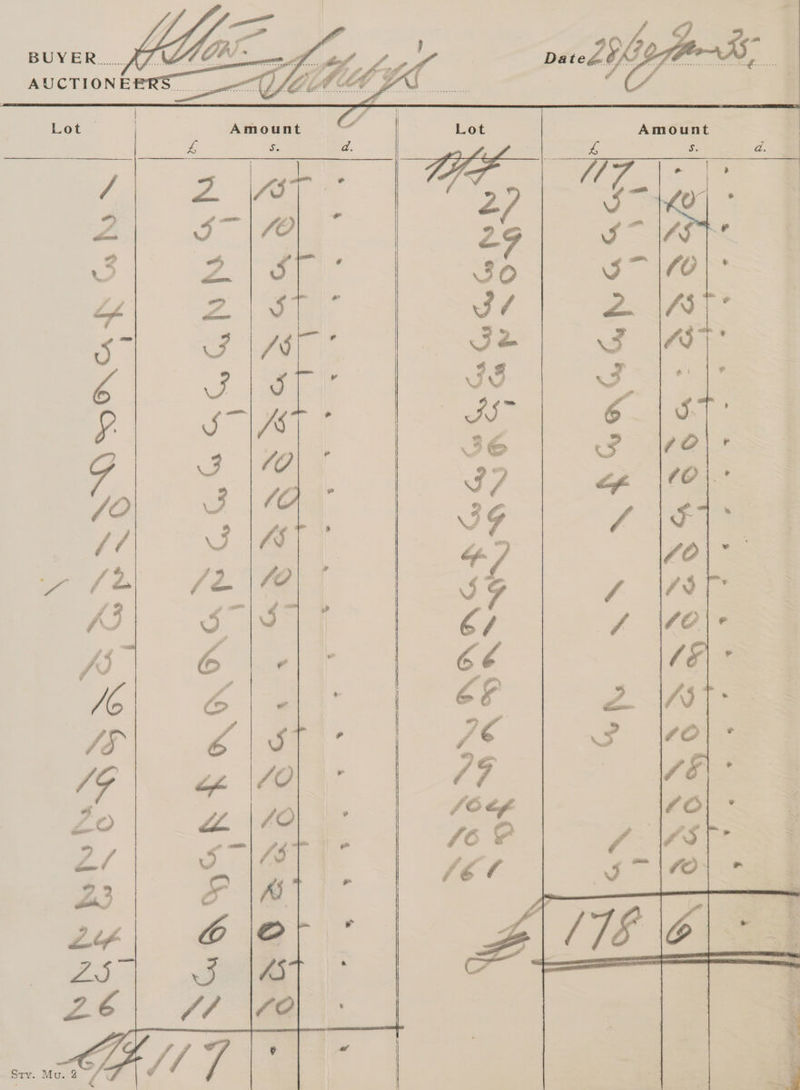 BUYER
AUCTIONEERS Sotheby's
Date 28/30 Jan 35.
Lot Amount Lot Amount
£ s. d. £ s. d.
B/F 117 - -
1 2 15 - 27 5 10 -
2 5 10 - 29 5 15 -
3 2 5 - 30 5 10 -
4 2 5 - 31 2 15 -
5 3 15 - 32 3 15 -
6 3 5 - 33 3 - -
8 5 15 - 35 6 5 -
9 3 10 - 36 3 10 -
10 3 10 - 37 4 10 -
11 3 15 - 39 1 5 -
12 12 10 - 47 10 -
13 5 5 - 59 1 15 -
15 6 - - 61 1 10 -
16 6 - - 66 18 -
18 6 5 - 68 2 15 -
19 4 10 - 76 3 10 -
20 4 10 - 79 18 -
21 5 15 - 104 10 -
23 8 15 - 108 1 15 -
24 6 0 - 161 5 10 -
25 3 15 - £ 178 6 -
26 11 10 -
C/F 117 - -
Sty. Mu. 2